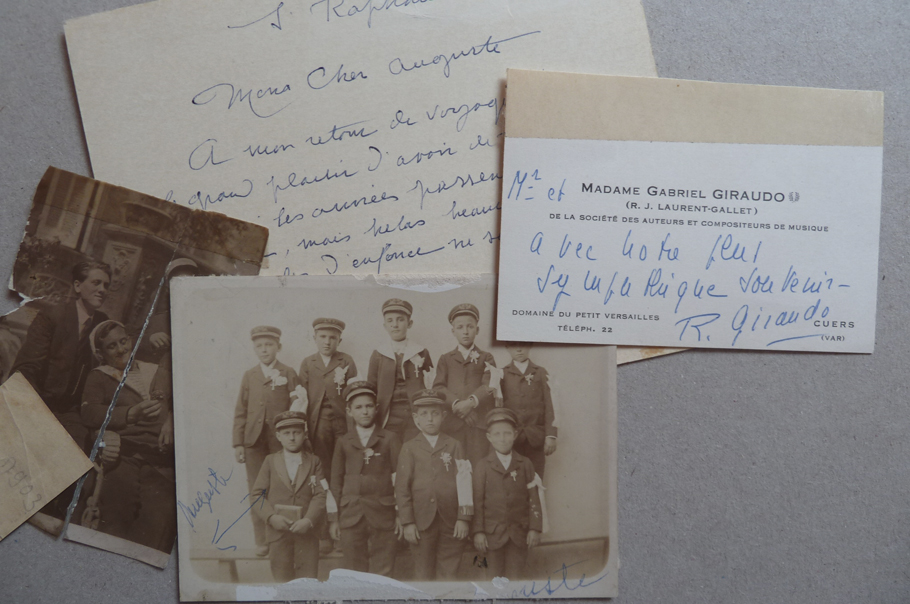 S. Rapha
Mona Cher Auguste
A mon retour de voyag
grand plaisir d'avoir de
les années passen
, mais helas beau
d'enfance ne s
Mr et MADAME GABRIEL GIRAUDO
(R. J. LAURENT-GALLET)
DE LA SOCIÉTÉ DES AUTEURS ET COMPOSITEURS DE MUSIQUE
avec notre plus
sympathique souvenir-
R. Giraudo
DOMAINE DU PETIT VERSAILLES
TÉLÉPH. 22
CUERS
(VAR)
Auguste
uste